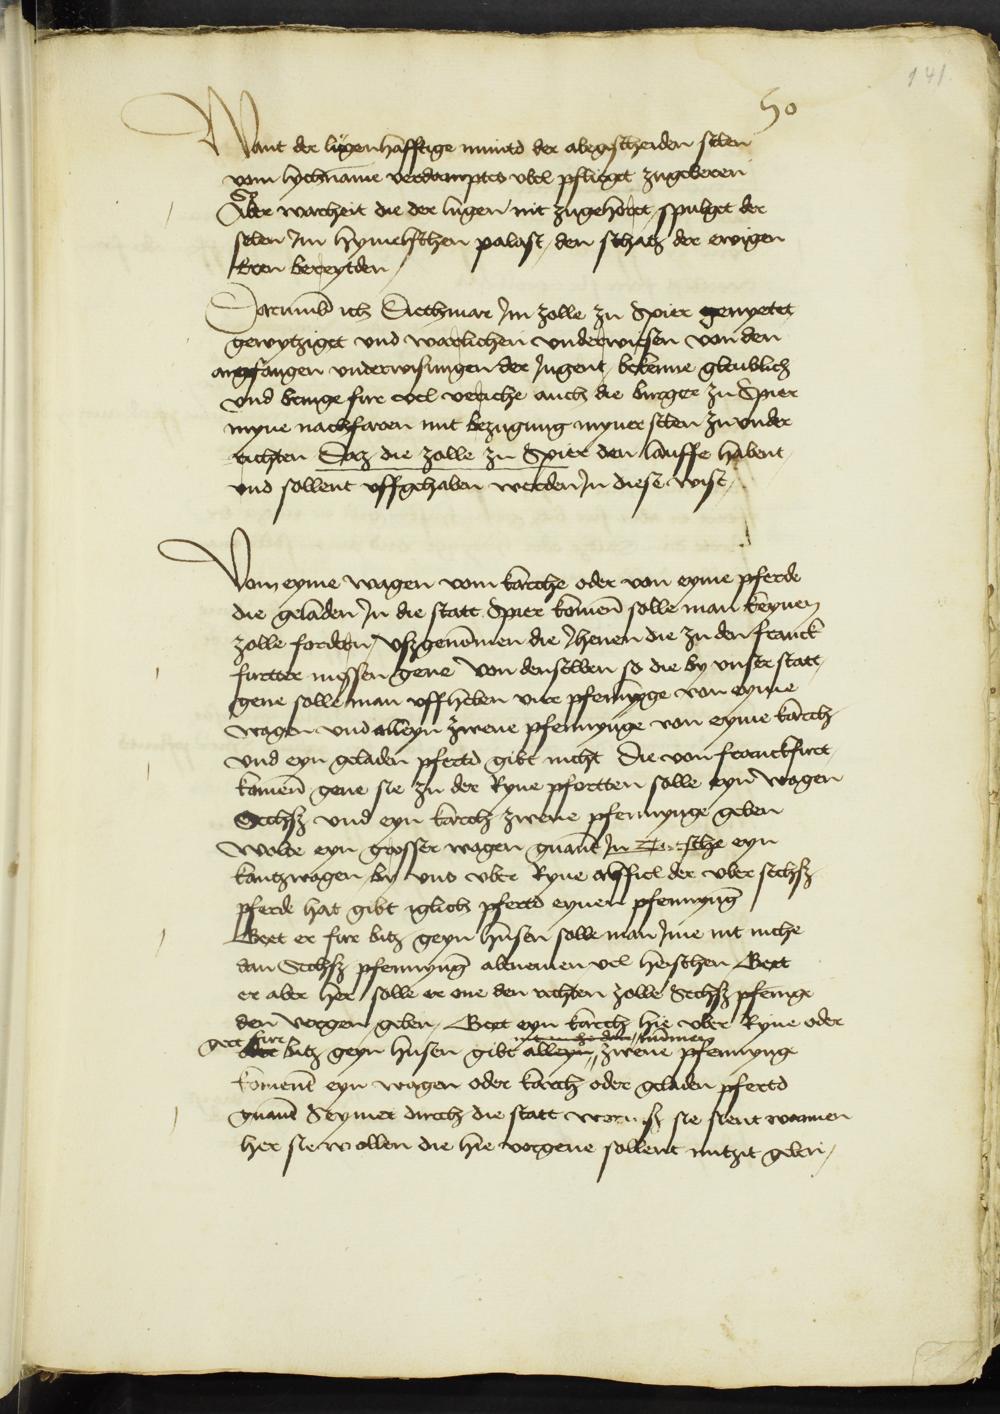 141.
50
Want der lügenhafftige mund der abegescheiden selen
vom lychname verdamptes ubel pfleget zugeberen
Aber warheit die der lugen nit zugehoret, spulget der
selen Jn hymelschen palast, den schatz der ewigen
Eren bereytden,
Darumb ich Diethmar Jm zolle zu Spier
gewytziget und warlichen underwiesen von den
anfangen underwisungen der Jugent, bekenne gleublich
und bringe fure auch die burger zu Spier
myne nachfaren mit bezugung myner selen zu under
richten Das die zolle zu Spier den lauffe habent,
und sollent uffgehaben werden Jn diese wise,
Vom eyme wagen vom karche oder von eyme pferde
die geladen Jn die statt Spier komen solle man keynen
zolle fordern, ußgenommen die Jhenen die zu den Franck
furtter messen gene Von denselben so die by unser statt,
gene solle man uffheben vier pfennynge von eyme
wagen und alleyn zwene pfennynge von eyme karch,
und eyn geladen pferd gibt nicht Die von franckfurt,
komen gene sie zu der Ryne pfortten solle eyn wagen
Sechß und eyn karch zwene pfennynge geben
Wolte eyn grosser wagen gnant Jn eyn
kantzwagen, by uns uber Ryne der uber sechß
pferde hat gibt iglich pferd eynen pfennyng
Geet er fure bitz geyn husen solle man Jme nit me
dan Sechß pfennyng abnemen heischen Geet
er aber her solle er one den rechten zolle Sechß pfennige
den vergen geben, Geet eyn karch hie uber Ryne oder
geet fure bitz geyn husen gibt alleyn zwene pfennynge
Koment eyn wagen oder karch oder geladen pferd
gnant Seymer durch die statt sie sient wannen
her sie wollen die hie vorgene sollent nutzit geben,